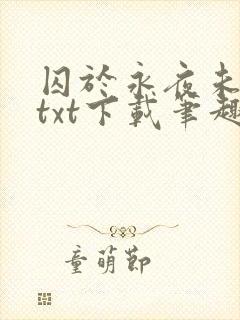 囚於永夜未
txt下載筆趣
童萌節